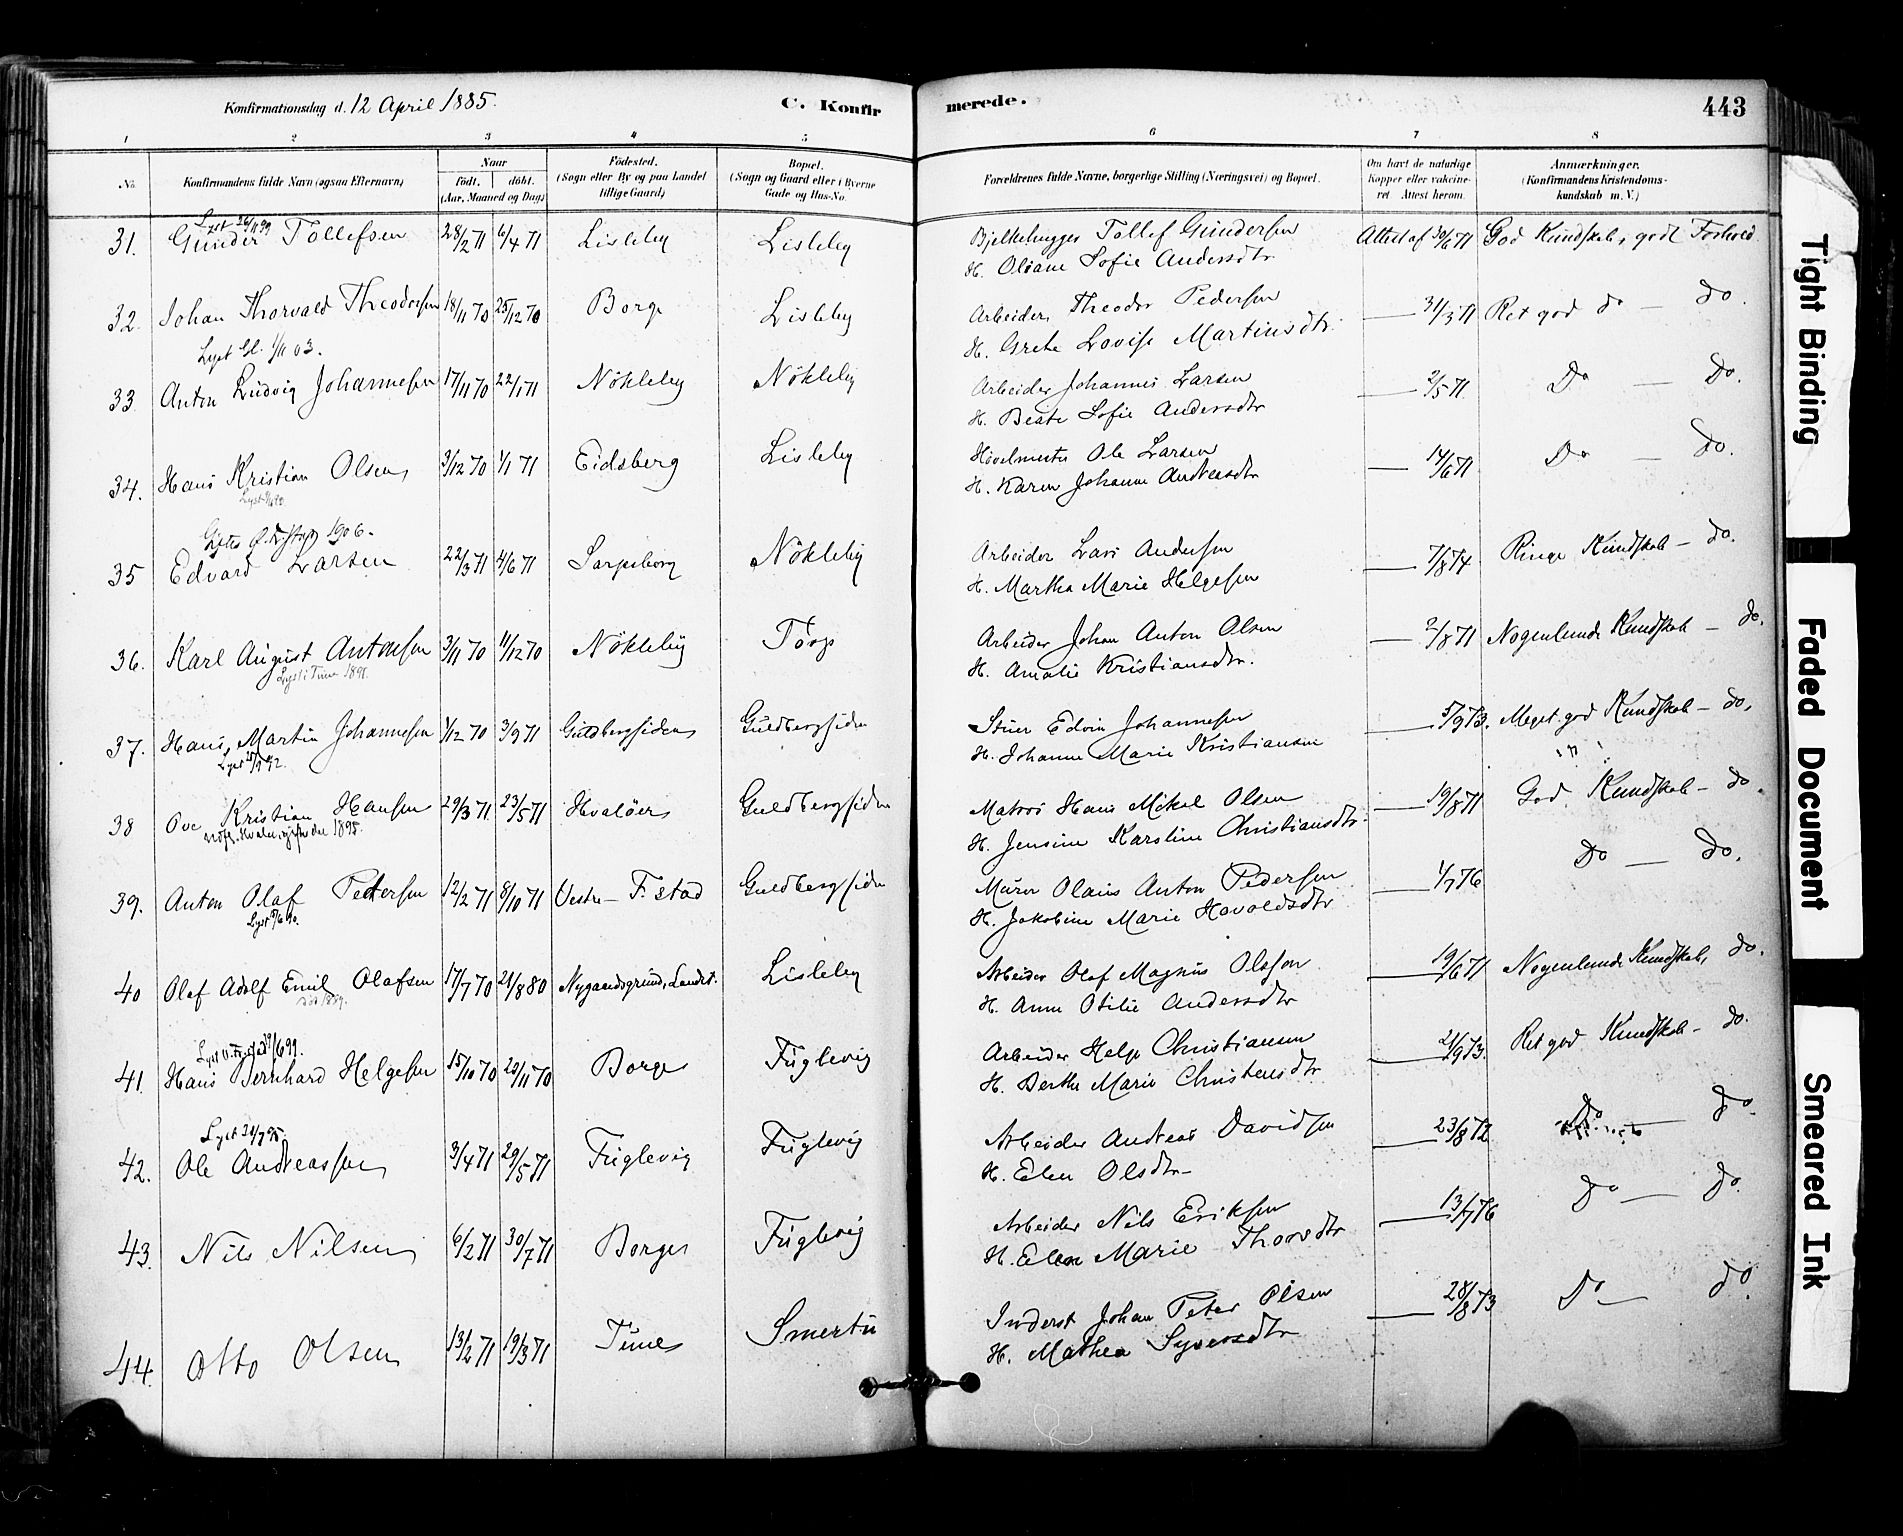 Konfirmationsdag d. 12 April 1885.
C. Konfirmerede.
443
1 2 3 4 5 6 7 8
No.
Konfirmandens fulde Navn (ogsaa Efternavn)
Naar
født. døbt.
(Aar, Maaned og Dag)
Fødested.
(Sogn eller By og paa Landet
tillige Gaard)
Bopæl.
(Sogn og Gaard eller i Byerne
Gade og Hus-No.
Forældrenes fulde Navne, borgerlige Stilling (Næringsvei) og Bopæl.
Om havt de naturlige
Kopper eller vakcine-
ret Attest herom.
Anmærkninger.
(Konfirmandens Kristendoms-
kundskab m. V.)
31. Gunder Tollefsen 28/2 71 6/4 71 Lisleby Lisleby Bjelkehugger Tollef Gundersen Attest af 30/6 71 God Kundskab, godt Forhold
H. Oliane Sofie Andersdtr
32. Johan Thorvald Theodorsen 18/11 70 25/12 70 Borge Lisleby Arbeider Theodor Pedersen — 31/3 71 Ret god do — do.
H. Grethe Lovise Martinsdtr.
Lyst Gl. 1/11 03.
33. Anton Ludvig Johannesen 17/11 70 22/1 71 Nökleby Nökleby Arbeider Johannes Larsen — 2/5 71 Do — Do.
H. Beate Sofie Andersdtr
34. Hans Kristian Olsen 3/12 70 1/1 71 Eidsberg Lisleby Hövelmester Ole Larsen — 14/6 71 Do — do.
H. Karen Johanne Andreasdtr
1906.
35 Edvard Larsen 22/3 71 4/6 71 Sarpsborg Nökleby Arbeider Lars Andersen — 7/8 74 Ringe Kundskab — do.
H. Martha Marie Helgesen
36. Karl August Antonsen 3/11 70 11/12 70 Nökleby Torp Arbeider Johan Anton Olsen — 2/8 71 Nogenlunde Kundskab — do.
Lyst i Tune 1891.
H. Amalie Kristiansdtr.
37. Hans Martin Johannesen 1/12 70 3/9 71 Guldbergsiden Guldbergsiden Stuer Edvin Johannesen — 5/9 73. Meget god Kundskab — do.
H. Johanne Marie Kristiansen
38 Ove Kristian Hansen 29/3 71 23/5 71 Hvalöer Guldbergsiden Matros Hans Mikal Olsen — 19/8 71 God Kundskab — do.
1895.
H. Jensine Karoline Christiansdtr.
39. Anton Olaf Pettersen 12/2 71 8/10 71 Vestre F.stad Guldbergsiden Murer Olaus Anton Pedersen — 1/7 76 Do — do.
H. Jakobine Marie Havoldsdtr
40 Olaf Adolf Emil Olafsen 17/7 70 21/8 80 Nygaardsgrund, Landet. Lisleby Arbeider Olof Magnus Olsson — 19/6 71 Nogenlunde Kundskab, do.
H. Anna Otilie Andersdtr
41. Hans Bernhard Helgesen 15/10 70 20/11 70 Borge Fuglevig Arbeider Helge Christiansen — 21/9 73. Ret god Kundskab — do.
H. Berthe Marie Christensdtr
42. Ole Andreassen 3/4 71 29/5 71 Fuglevig Fuglevig Arbeider Andreas Davidsen — 23/8 72 Do — do.
H. Elen Olsdtr
43. Nils Nilsen 6/2 71 30/7 71 Borge Fuglevig Arbeider Nils Eriksen — 13/7 76 Do — Do.
H. Elen Marie Thorsdtr
44. Otto Olsen 13/2 71 19/3 71 Tune Smertu Inderst Johan Peter Olsen — 28/8 73 Do — do.
H. Mathea Syversdtr
Tight Binding
Faded Document
Smeared Ink